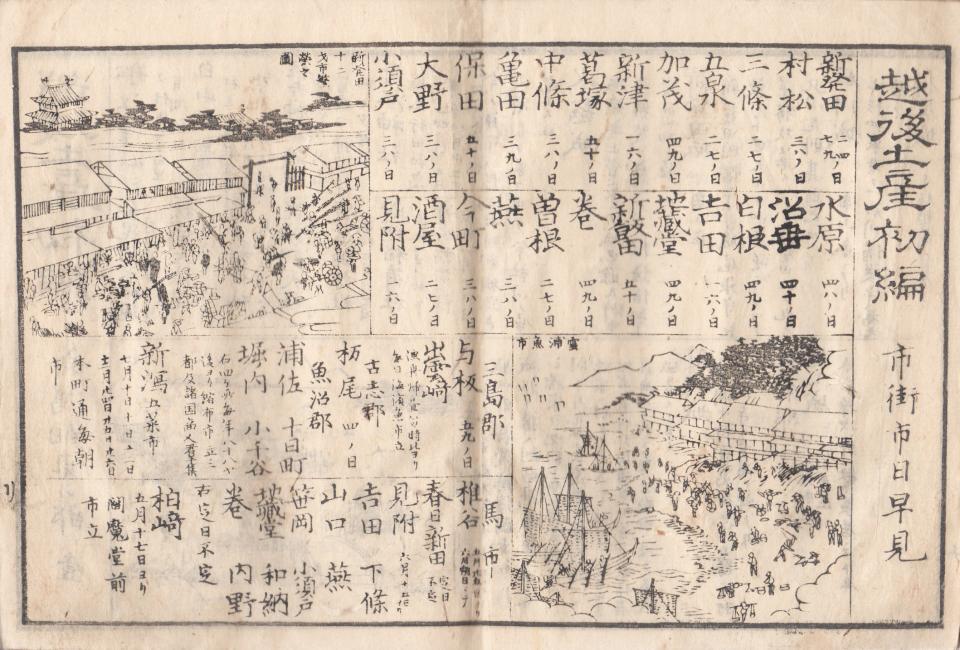 越後土産初編
市街市日早見
新発田 二四七九ノ日
村松 三八ノ日
三條 二七ノ日
五泉 二七ノ日
加茂 四九ノ日
新津 一六ノ日
葛塚 五十ノ日
中條 三八ノ日
亀田 三九ノ日
保田 五十ノ日
大野 三八ノ日
小須戸 三八ノ日
水原 四八ノ日
沼垂 四十ノ日
白根 四九ノ日
吉田 一六ノ日
地蔵堂 四九ノ日
新飯田 五十ノ日
巻 四九ノ日
曽根 二七ノ日
燕 三八ノ日
今町 三八ノ日
酒屋 二七ノ日
見附 一六ノ日
新発田
十二
図
雲浦魚市
三島郡
与板 五九ノ日
出雲崎
毎日海濱魚市立
古志郡
栃尾 四ノ日
魚沼郡
浦佐 十日町
堀内 小千谷
新潟五菜市
七月十日十一日
本町通毎朝
市
馬市
椎谷
春日新田 定日不定
見附
吉田 下條
山口 燕
笹岡 小須戸
地蔵堂 和納
巻 内野
右定日不定
柏崎
五月十七日ヨリ
閻魔堂前
市立